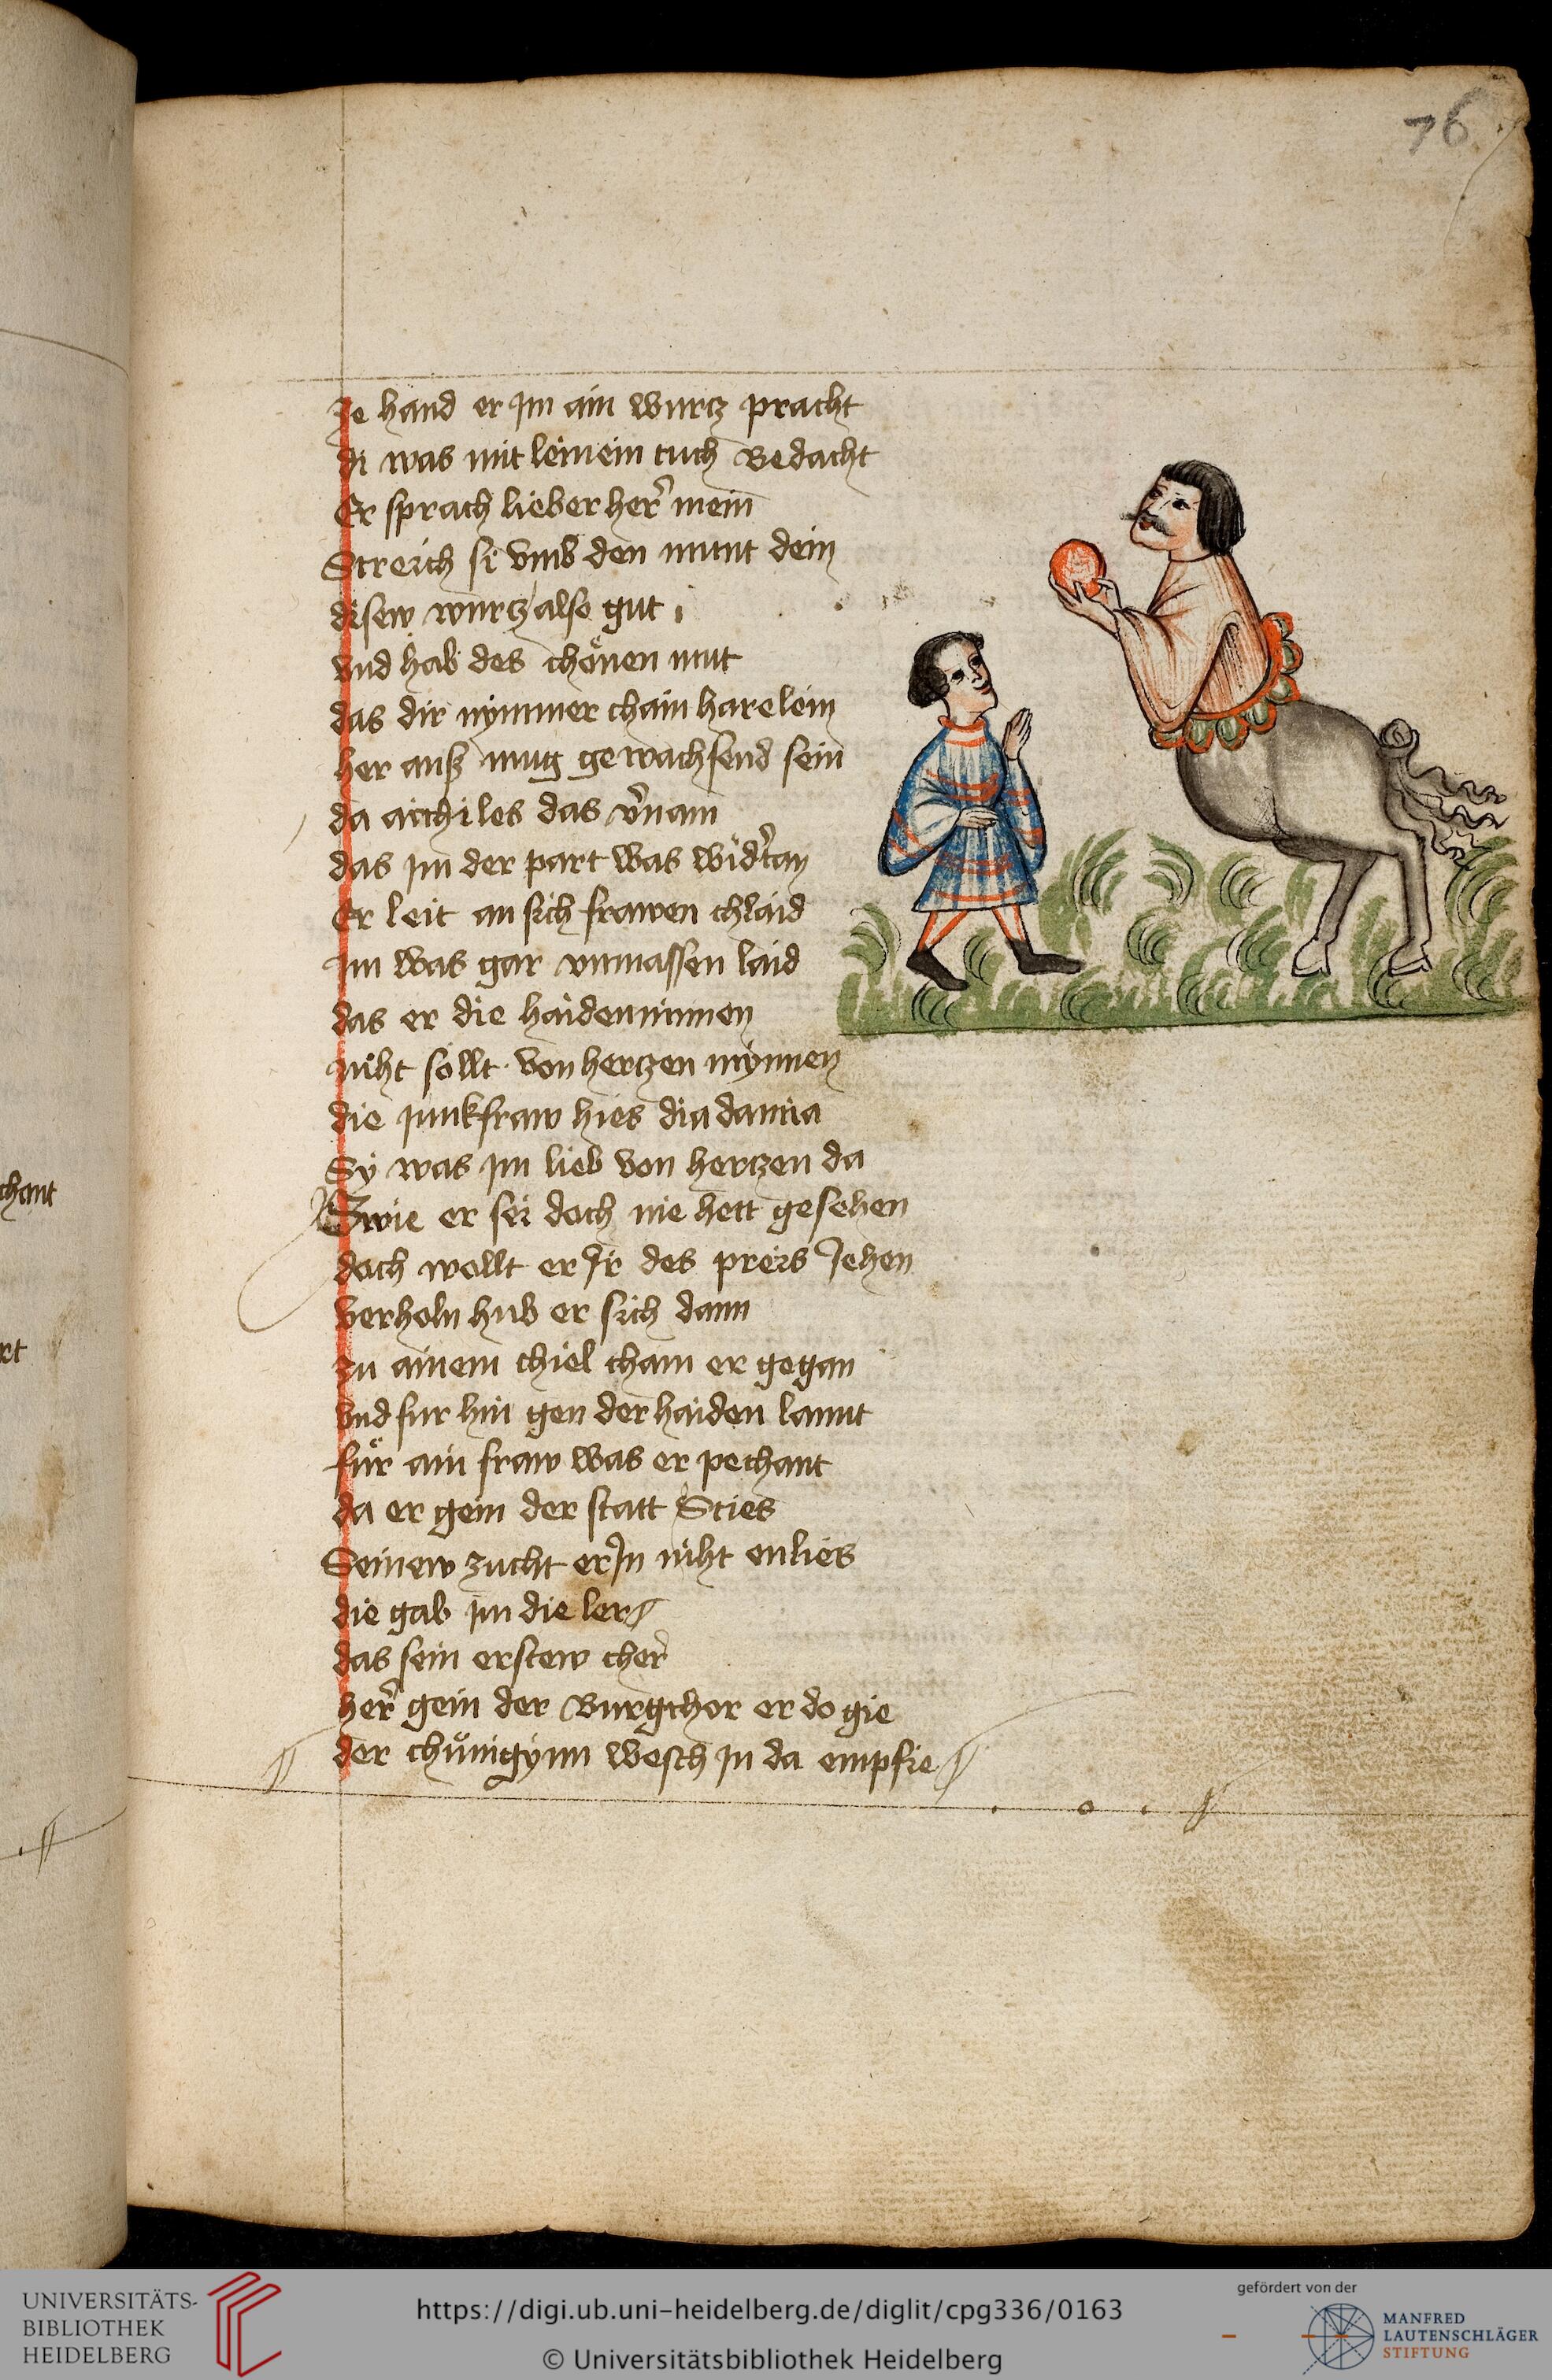 76
Ze hand er jm ain wurcz pracht
di was mit leinein tuch Bedacht
Er sprach lieber her̄ mein
Streich si vmb den munt dein
disew wurcz also gut
vnd hab des chönen mut
das dir nymmer chain harelein
her auß mug gewachsend sein
da aichiles das v̄nam
das jm der part was widertan
Er leit an sich frawen chlaid
jm was gar vnmassen laid
das er die haideninnen
niht söllt von herczen mynnen
die junkfraw hies diadamia
Sy was jm lieb von herczen da
Swie er sei doch nie hett gesehen
doch wollt er Jr des preis Jehen
verholn hub er sich dann
zu ainem chiel cham er gegan
vnd fur hin gen der haiden lannt
für ain fraw was er pechant
da er gein der statt Sties
Seinew zucht er Jn niht enlies
die gab jm die ler
das sein erstew cher
her̄ gein der Burgthor er do gie
der chünigynn wesch jn da empfie
chant
rt
UNIVERSITÄTS-
BIBLIOTHEK
HEIDELBERG
https://digi.ub.uni-heidelberg.de/diglit/cpg336/0163
© Universitätsbibliothek Heidelberg
gefördert von der
MANFRED
LAUTENSCHLÄGER
STIFTUNG